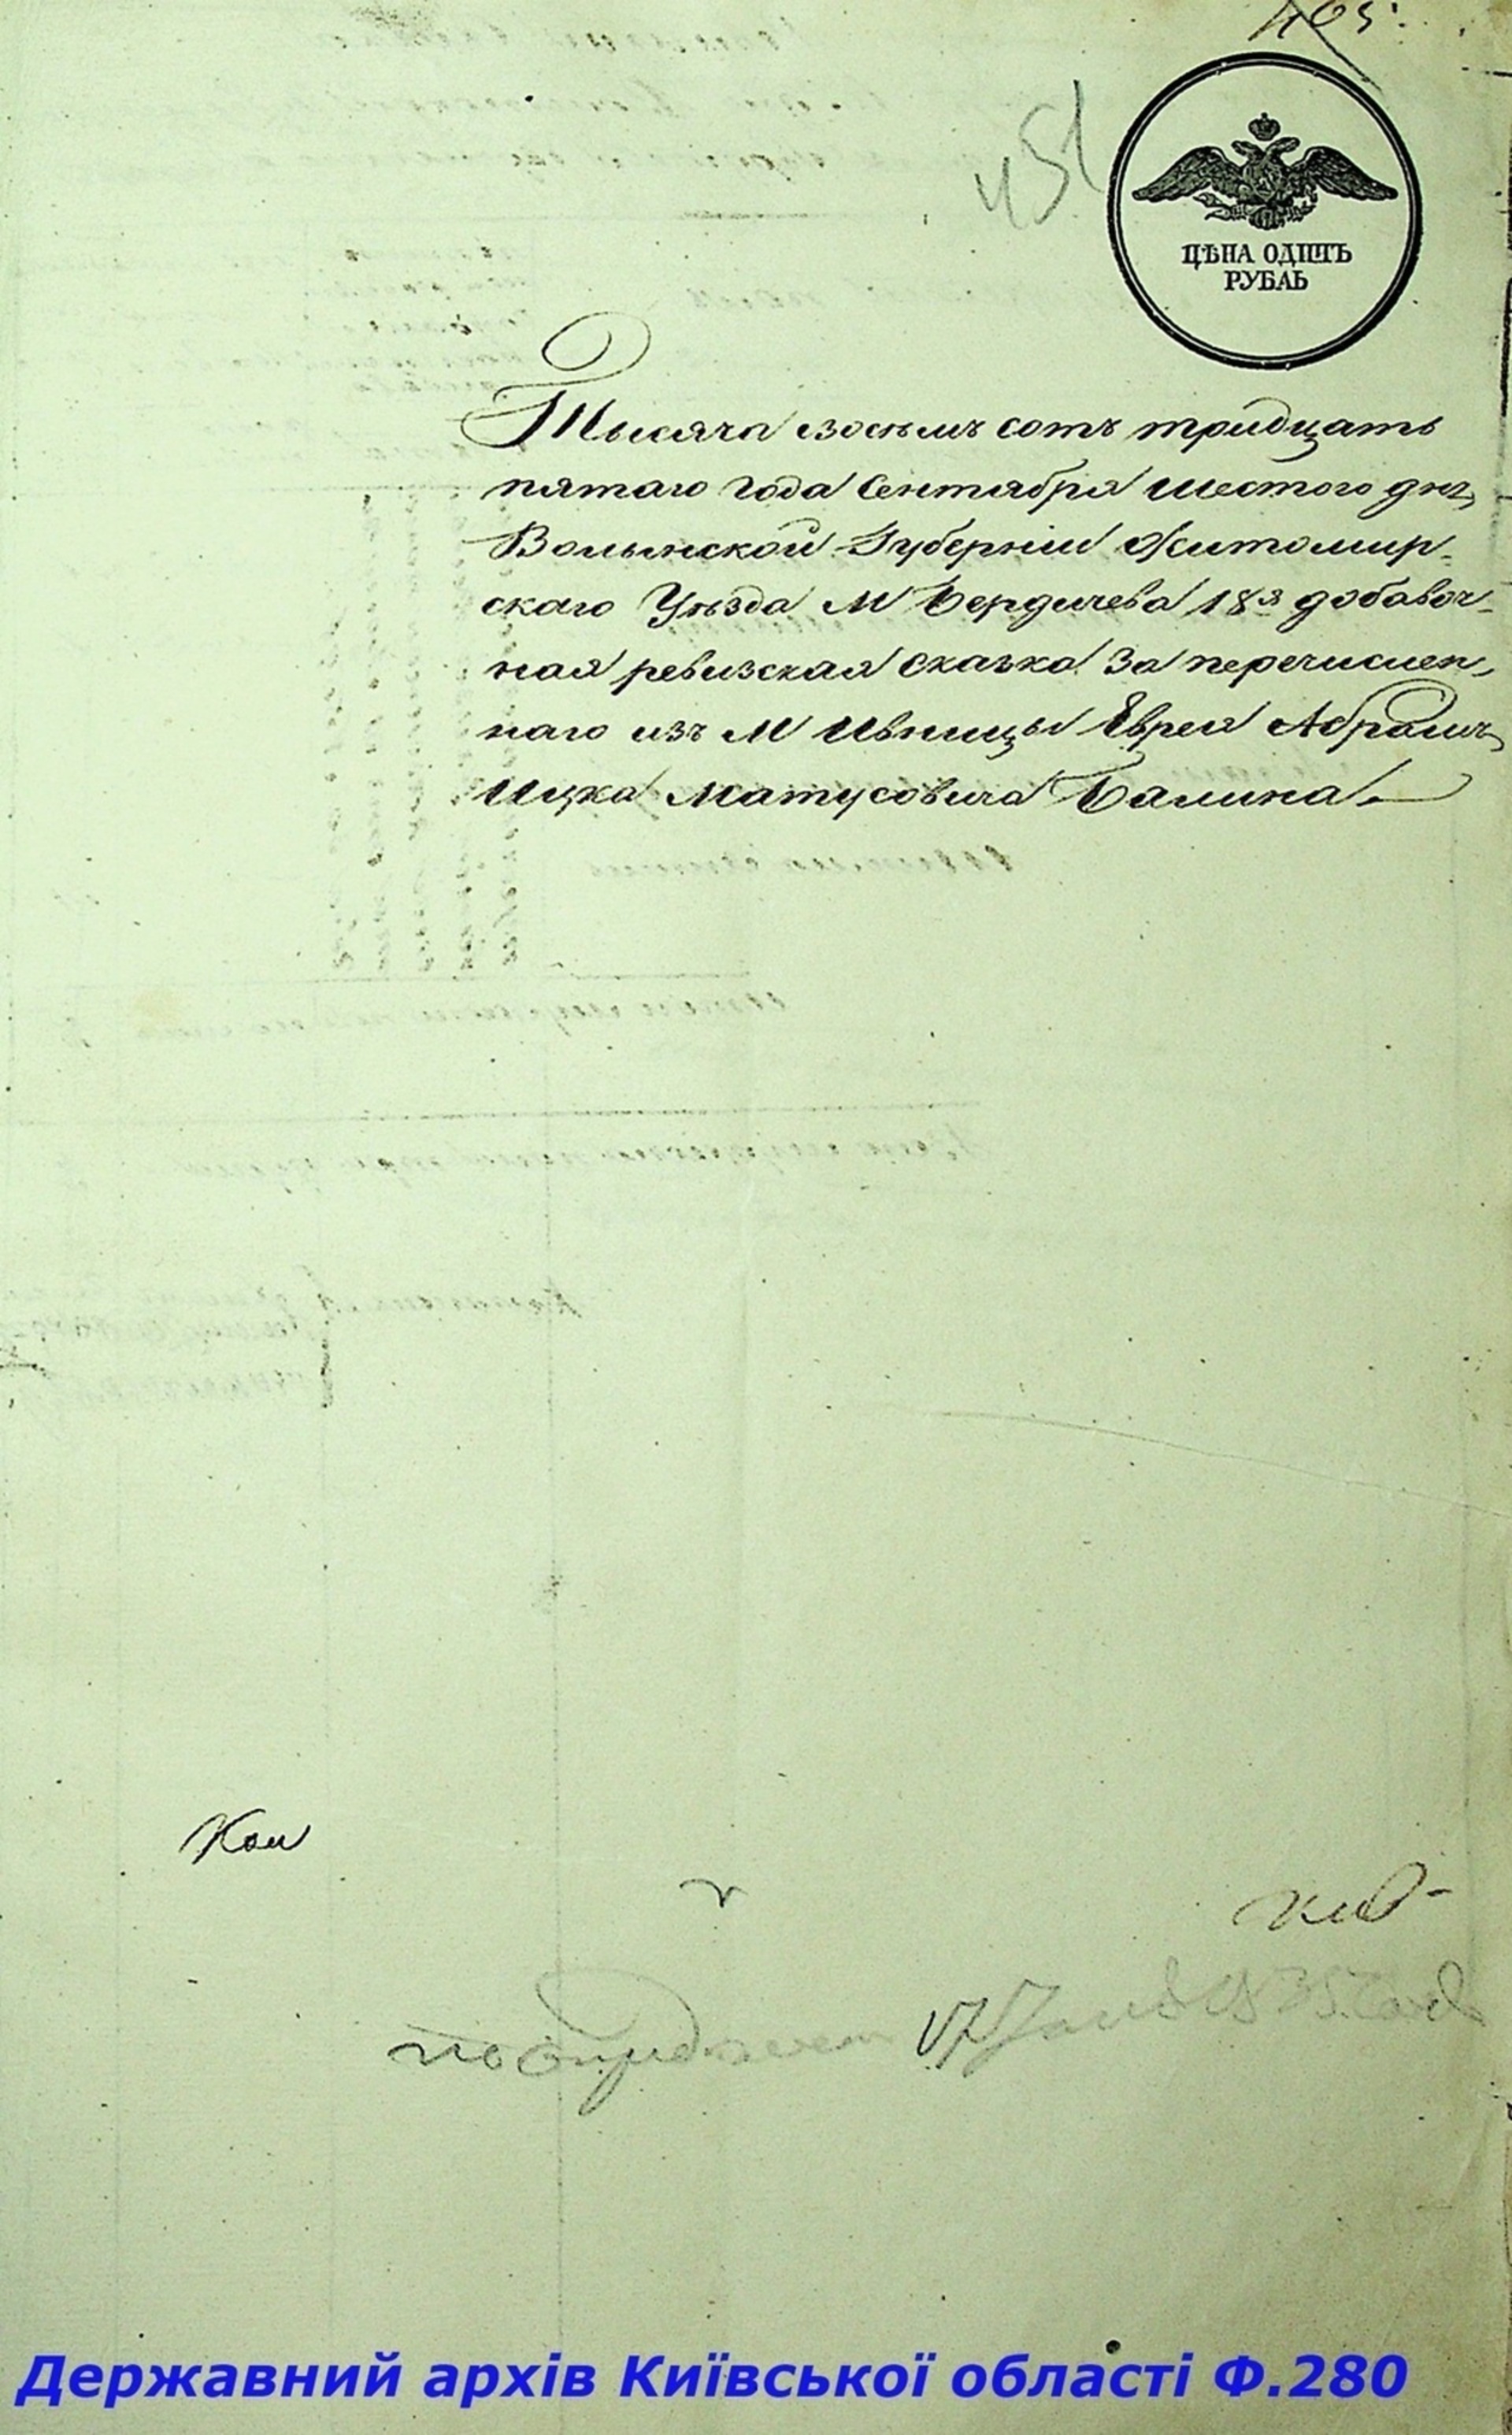 465.
451
ЦѢНА ОДИНЪ
РУБЛЬ
Тысяча восемь сотъ тридцать
пятаго года Сентября шестого дня
Волынской Губерніи Житомир-
скаго Уѣзда М Бердичева 18я добавоч-
ная ревизская сказка за перечислен-
наго изъ М Ивницы Еврея Абрамъ
Ицка Матусовича Балина
Кои
Державний архів Київської області Ф.280